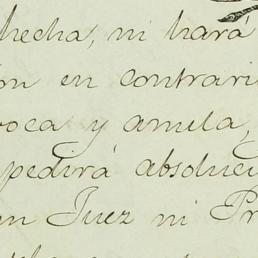 hecha, ni hará
ón en contrari
oca y anula,
pedirá absoluci
un Juez ni Pr